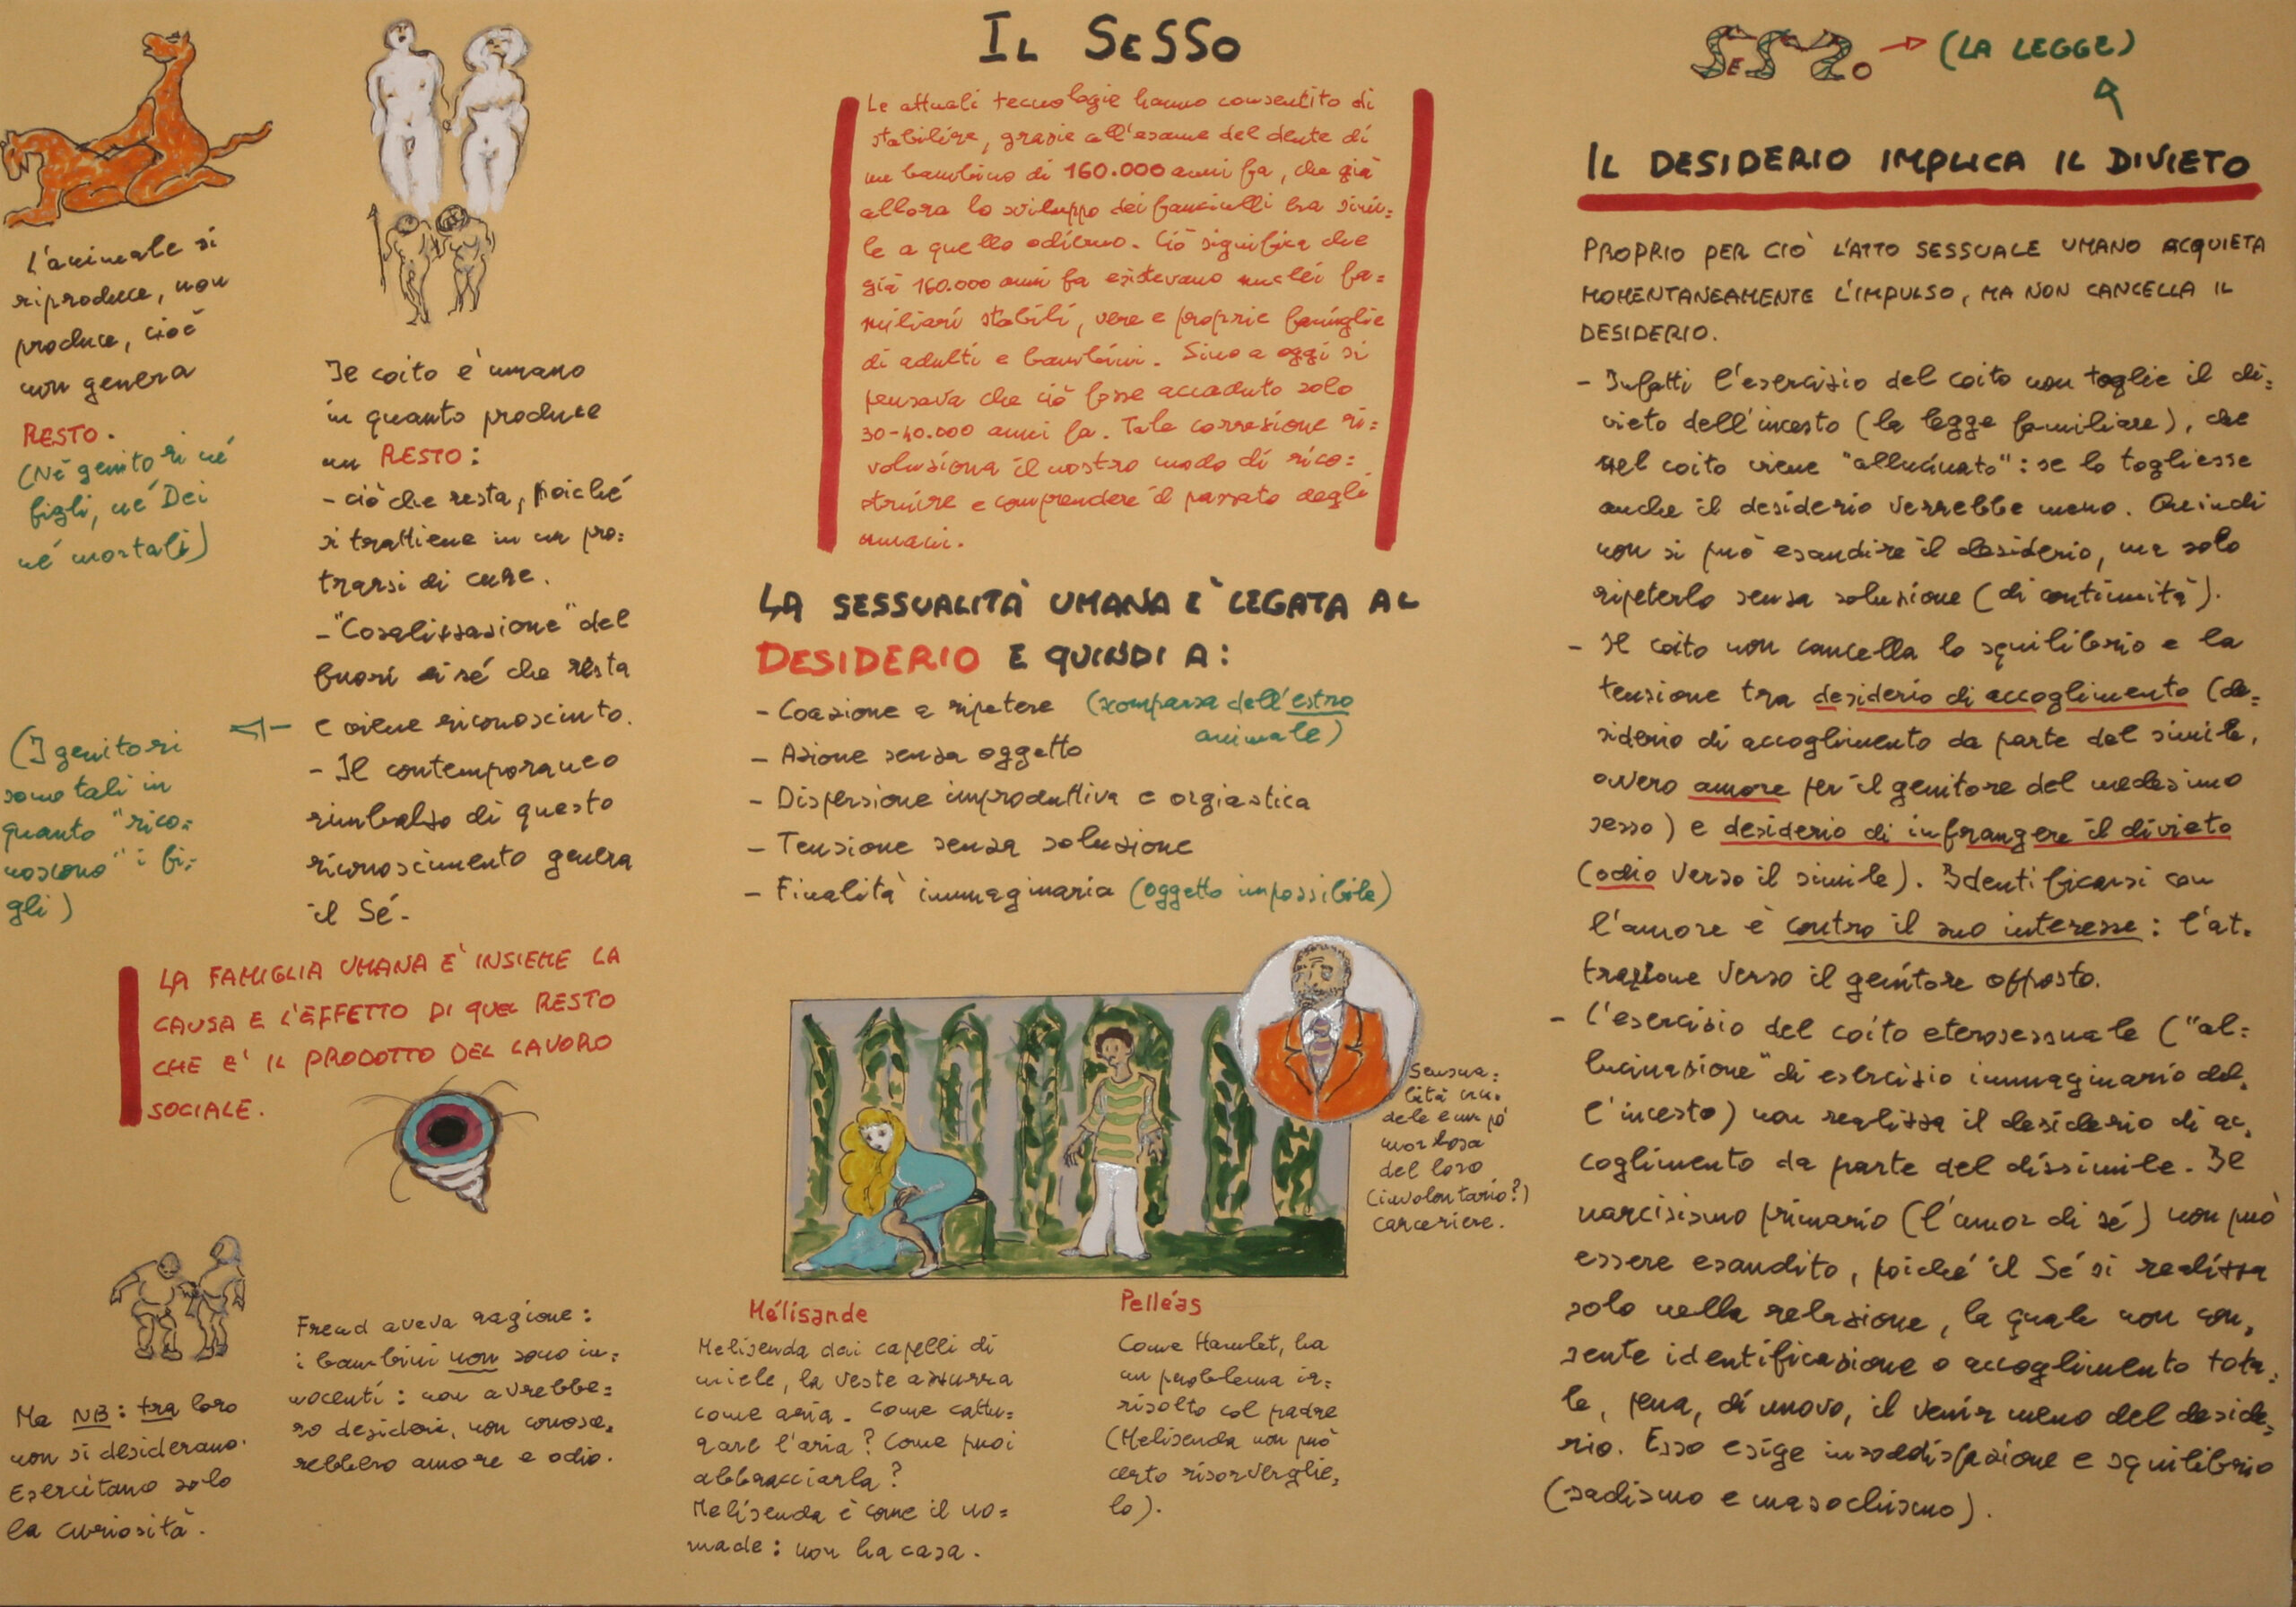 L'animale si
riproduce, non
produce, cioè
non genera
RESTO.
(Né genitori né
figli, né Dei
né mortali)
(I genitori
sono tali in
quanto "rico=
noscono" i fi=
gli)
Il coito è umano
in quanto produce
un RESTO:
- ciò che resta, poiché
si trattiene in un pro=
trarsi di cure.
- "Cosalizzazione" del
fuori di sé che resta
e viene riconosciuto.
- Il contemporaneo
rimbalzo di questo
riconoscimento genera
il Sé.
LA FAMIGLIA UMANA E' INSIEME LA
CAUSA E L'EFFETTO DI QUEL RESTO
CHE E' IL PRODOTTO DEL LAVORO
SOCIALE.
Ma NB: tra loro
non si desiderano.
Esercitano solo
la curiosità.
Freud aveva ragione:
i bambini non sono in=
nocenti: non avrebbe=
ro desideri, non conosce=
rebbero amore e odio.
IL SESSO
Le attuali tecnologie hanno consentito di
stabilire, grazie all'esame del dente di
un bambino di 160.000 anni fa, che già
allora lo sviluppo dei fanciulli era simi=
le a quello odierno. Ciò significa che
già 160.000 anni fa esistevano nuclei fa=
miliari stabili, vere e proprie famiglie
di adulti e bambini. Sino a oggi si
pensava che ciò fosse accaduto solo
30-40.000 anni fa. Tale correzione ri=
voluziona il nostro modo di rico=
struire e comprendere il passato degli
umani.
LA SESSUALITÀ UMANA E' LEGATA AL
DESIDERIO E QUINDI A:
- Coazione a ripetere (scomparsa dell'estro
animale)
- Azione senza oggetto
- Dispersione improduttiva e orgiastica
- Tensione senza soluzione
- Finalità immaginaria (oggetto impossibile)
Sensua=
lità cru=
dele e un pò
morbosa
del loro
(involontario?)
carceriere.
Mélisande
Melisenda dai capelli di
miele, la veste azzurra
come aria. Come cattu=
rare l'aria? Come puoi
abbracciarla?
Melisenda è come il no=
made: non ha casa.
Pelléas
Come Hamlet, ha
un problema ir=
risolto col padre
(Melisenda non può
certo risorverglie=
lo).
SESSO → (LA LEGGE)
IL DESIDERIO IMPLICA IL DIVIETO
PROPRIO PER CIÒ L'ATTO SESSUALE UMANO ACQUIETA
MOMENTANEAMENTE L'IMPULSO, MA NON CANCELLA IL
DESIDERIO.
- Infatti l'esercizio del coito non toglie il di=
vieto dell'incesto (la legge familiare), che
nel coito viene "allucinato": se lo togliesse
anche il desiderio verrebbe meno. Quindi
non si può esaudire il desiderio, ma solo
ripeterlo senza soluzione (di continuità).
- Il coito non cancella lo squilibrio e la
tensione tra desiderio di accoglimento (de=
siderio di accoglimento da parte del simile,
ovvero amore per il genitore del medesimo
sesso) e desiderio di infrangere il divieto
(odio verso il simile). Identificarsi con
l'amore è contro il suo interesse: l'at=
trazione verso il genitore opposto.
- L'esercizio del coito eterosessuale ("al=
lucinazione" di esercizio immaginario del=
l'incesto) non realizza il desiderio di ac=
coglimento da parte del dissimile. Il
narcisismo primario (l'amor di sé) non può
essere esaudito, poiché il Sé si realizza
solo nella relazione, la quale non con=
sente identificazione o accoglimento tota=
le, pena, di nuovo, il venir meno del deside=
rio. Esso esige insoddisfazione e squilibrio
(sadismo e masochismo).